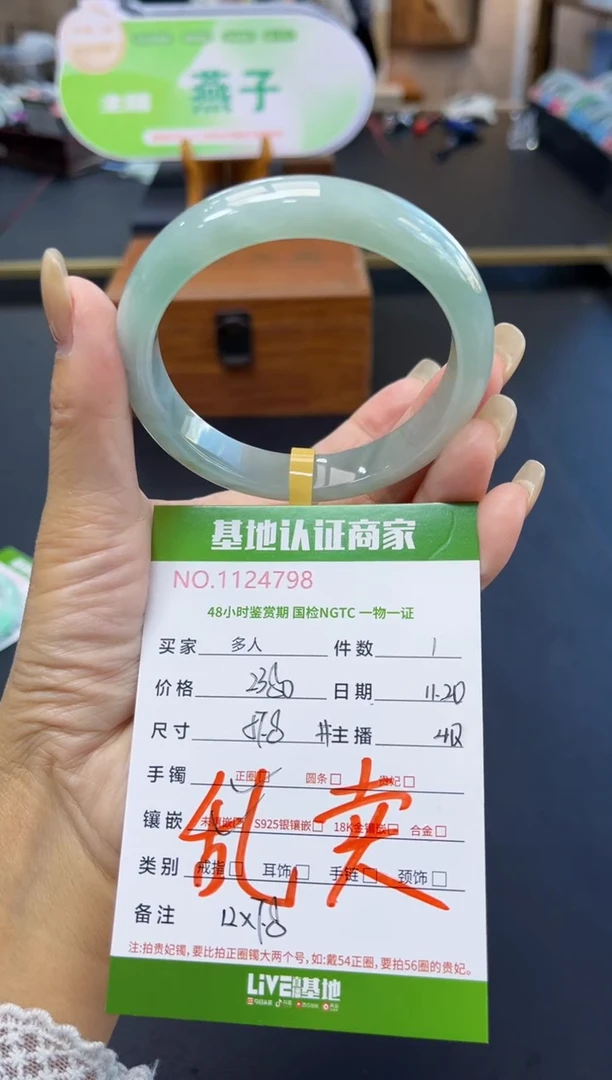 燕子
基地认证商家
NO.1124798
48小时鉴赏期 国检NGTC 一物一证
买家 多人 件数 1
价格 2380 日期 11.20
尺寸 57.8 # 主播
手镯 正圈 圆条 贵妃
镶嵌 S925银镶嵌 18K金镶嵌 合金
类别 戒指 耳饰 手链 颈饰
乱卖
备注 12x7.8
注:拍贵妃镯,要比拍正圈镯大两个号,如:戴54正圈,要拍56圈的贵妃。
LIVE直播基地